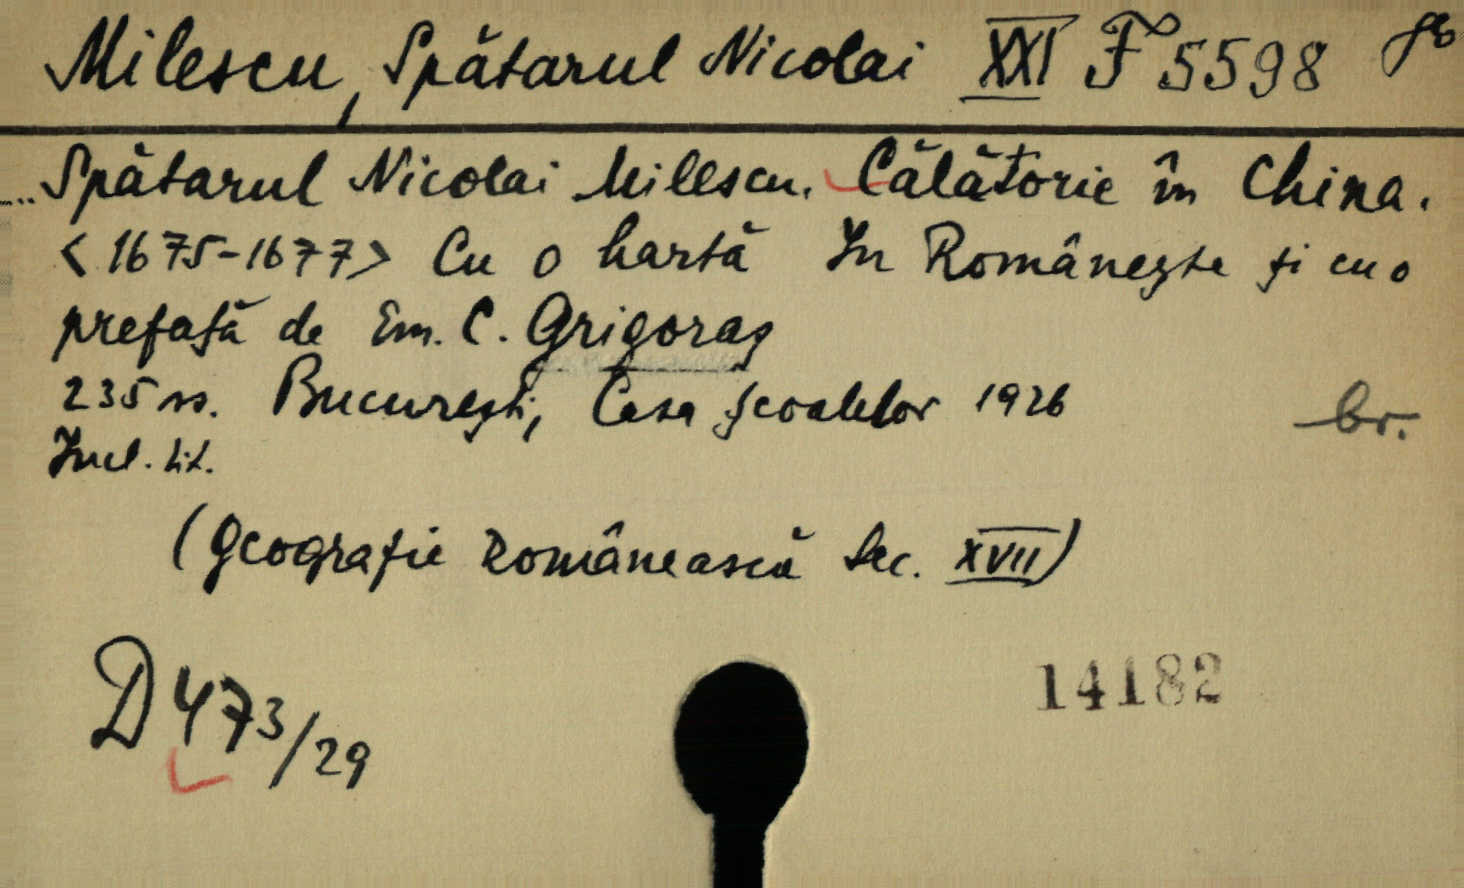 Milescu, Spătarul Nicolai XXI F 5598
Spătarul Nicolai Milescu. Călătorie în China.
<1675-1677> Cu o hartă In Românește și cu o
prefață de Em. C. Grigoraș
235 ss. București, Casa școalelor 1926 br.
Incl. tit.
(Geografie Românească Sec. XVII)
D 473/29
14182